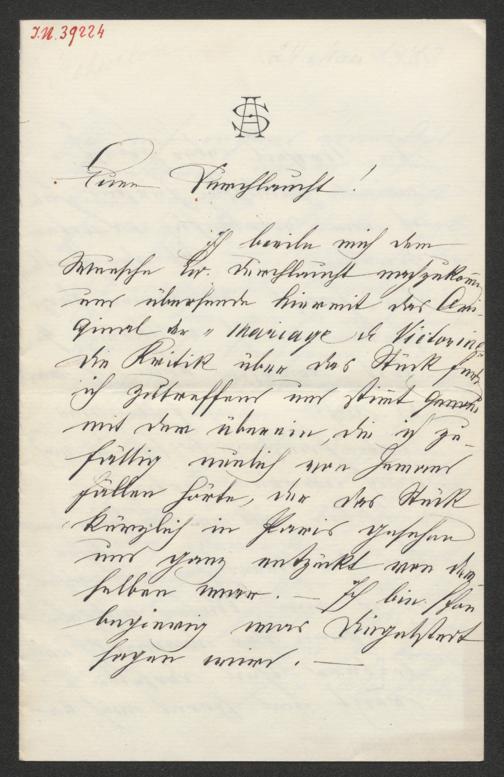 J.N. 39224
AS
Euer Durchlaucht!
Ich beeile mich dem
Wunsche Ew. Durchlaucht nachzukommen
und übersende hiermit das Ori-
ginal der „mariage de Victorine
die Kritik über das Stück finde
ich zutreffend und stimt genau
mit dem überein, die ich zu-
fällig neulich von Jemand
fällen hörte, der das Stück
kürzlich in Paris gesehen
und ganz entzückt von dem-
selben war. — Ich bin schon
begierig was Dingelstedt
sagen wird. —